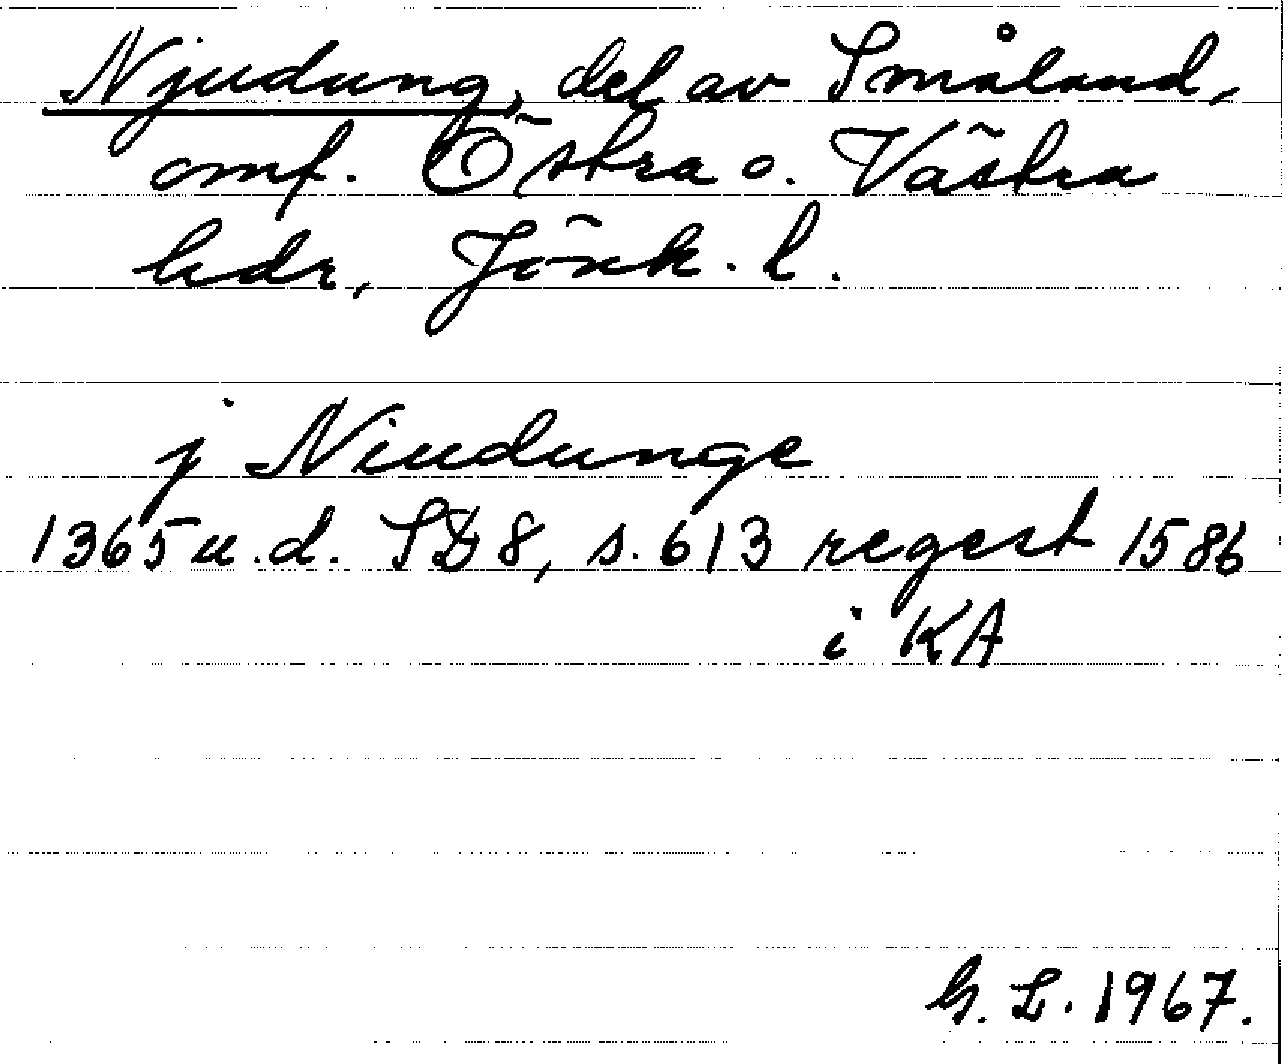 Njudung, del av Småland,
omf. Östra o. Västra
hdr, Jönk. l.
j Niudunge
1365 u.d. SD 8, s. 613 regest 1586
i KA
G. L. 1967.